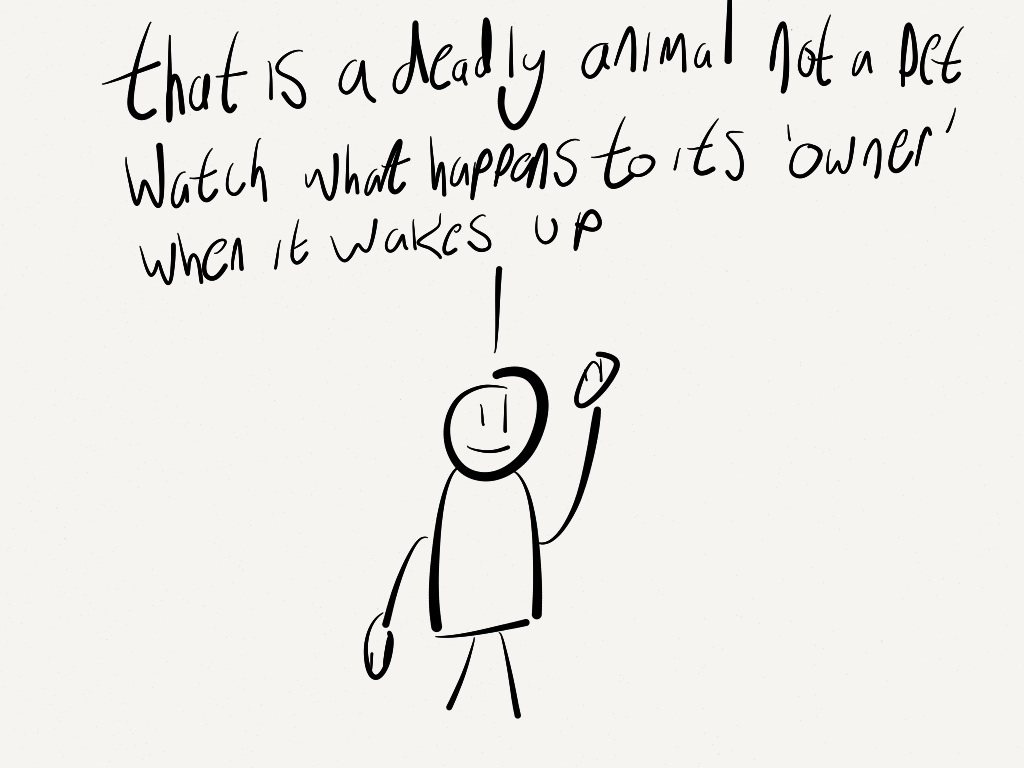 that is a deadly animal not a pet
Watch what happens to its 'owner'
when it wakes up